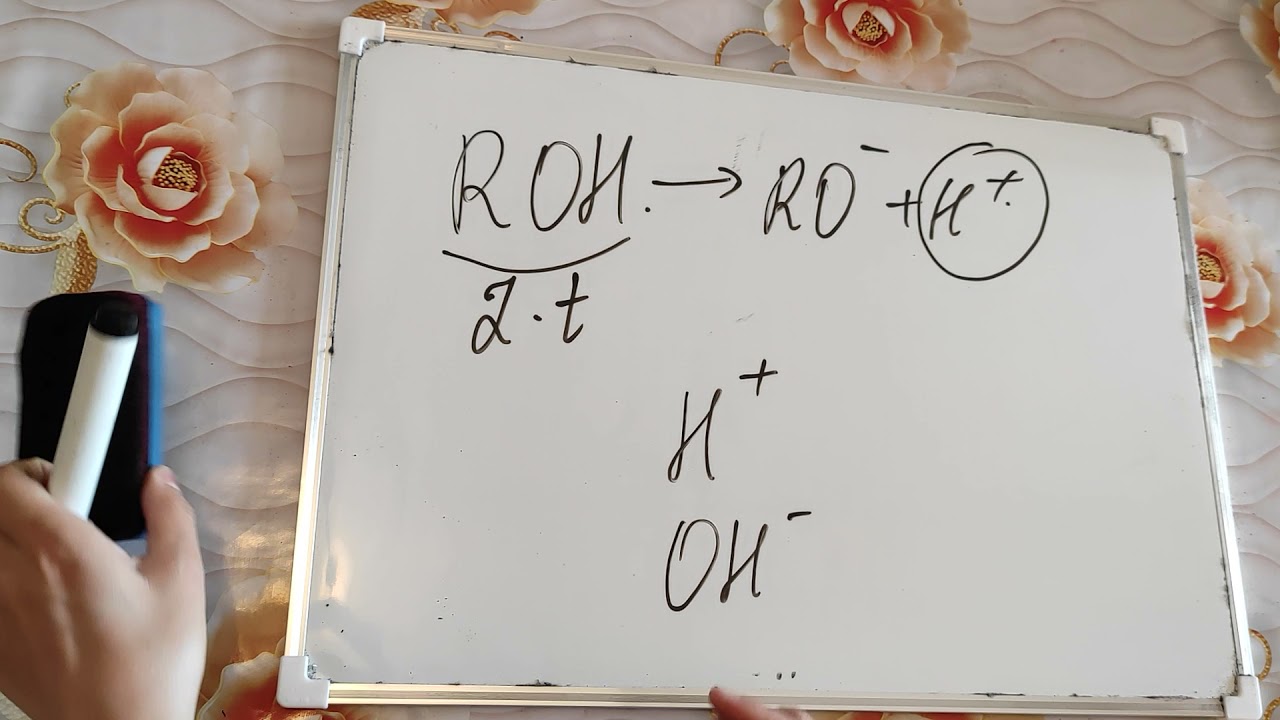 ROH. → RO⁻ + H⁺
2·t
H⁺
OH⁻